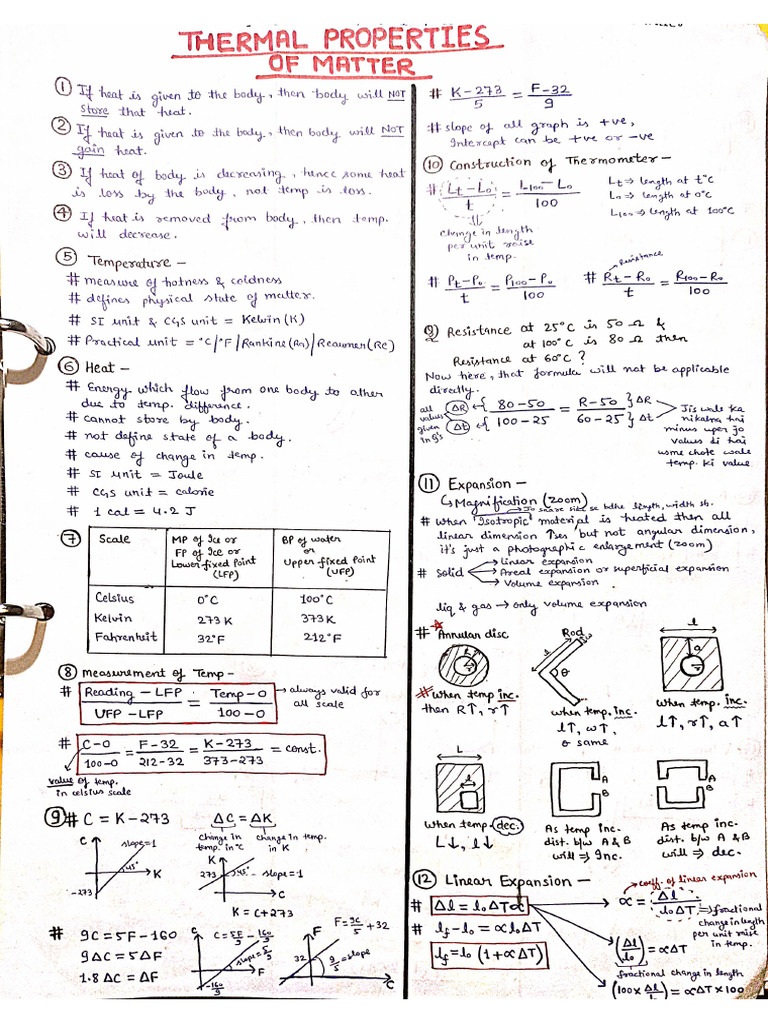 THERMAL PROPERTIES
OF MATTER
① If heat is given to the body, then body will NOT
store that heat.
② If heat is given to the body, then body will NOT
gain heat.
③ If heat of body is decreasing, hence some heat
is loss by the body, not temp is loss.
④ If heat is removed from body, then temp.
will decrease.
⑤ Temperature –
# measure of hotness & coldness
# defines physical state of matter.
# SI unit & CGS unit = Kelwin (K)
# Practical unit = °C/°F/Rankine(Rn)/Reaumer(Re)
⑥ Heat –
# Energy which flow from one body to other
due to temp. difference.
# cannot store by body.
# not define state of a body.
# cause of change in temp.
# SI unit = Joule
# CGS unit = calorie
# 1 cal = 4.2 J
⑦ Scale | MP of Ice or FP of Ice or Lower fixed Point (LFP) | BP of water or Upper fixed Point (UFP)
Celsius 0°C 100°C
Kelvin 273 K 373K
Fahrenheit 32°F 212°F
⑧ Measurement of Temp –
# (Reading – LFP)/(UFP – LFP) = (Temp – 0)/(100 – 0) → always valid for
all scale
# (C-0)/(100-0) = (F-32)/(212-32) = (K-273)/(373-273) = const.
value of temp.
in celsius scale
⑨ # C = K - 273 ΔC = ΔK
change in temp. in °C change in temp. in K
C slope=1 45° K -273
K 273 45° slope=1 C
K = C+273
# 9C = 5F - 160
9ΔC = 5ΔF
1.8 ΔC = ΔF
C C = 5F/9 - 160/9 slope = 5/9 F -160/9
F F = 9C/5 + 32 32 9/5 = slope C
# (K-273)/5 = (F-32)/9
# slope of all graph is +ve,
Intercept can be +ve or -ve
⑩ Construction of Thermometer –
# (Lt - L0)/t = (L100 - L0)/100
Lt ⇒ length at t°C
L0 ⇒ length at 0°C
L100 ⇒ length at 100°C
change in length
per unit raise
in temp.
# (Pt - P0)/t = (P100 - P0)/100 # (Rt - R0)/t = (R100 - R0)/100
Resistance
Q Resistance at 25°C is 50 Ω &
at 100°C is 80 Ω then
Resistance at 60°C ?
Now here, that formula will not be applicable
directly.
all values given in Q's
ΔR Δt { (80-50)/(100-25) = (R-50)/(60-25) } ΔR Δt
Jis wale ka
nikalna hai
minus uper jo
values di hai
usme chote wale
temp. ki value
⑪ Expansion –
↳ Magnification (zoom)
# When 'Isotropic' material is heated then all
linear dimension ↑ses but not angular dimension,
it's just a photographic enlargement (zoom)
# Solid → Linear expansion
→ Areal expansion or superficial expansion
→ Volume expansion
liq & gas → only volume expansion
# Annulan disc Rod
R r l w θ l a r
# When temp inc.
then R↑, r↑
when temp. inc.
l↑, w↑,
θ same
when temp. inc.
l↑, r↑, a↑
L l
when temp. dec.
L↓, l↓
A B
As temp inc.
dist. b/w A & B
will ⇒ Inc.
A B
As temp inc.
dist. b/w A & B
will ⇒ dec.
⑫ Linear Expansion –
# Δl = l0 ΔT α
# lf - l0 = α l0 ΔT
lf = l0 (1 + αΔT)
coeff. of linear expansion
α = Δl/(l0 ΔT) ⇒ fractional
change in length
per unit raise
in temp.
(Δl/l0) = αΔT
fractional change in length
(100 × Δl/l0) = αΔT × 100